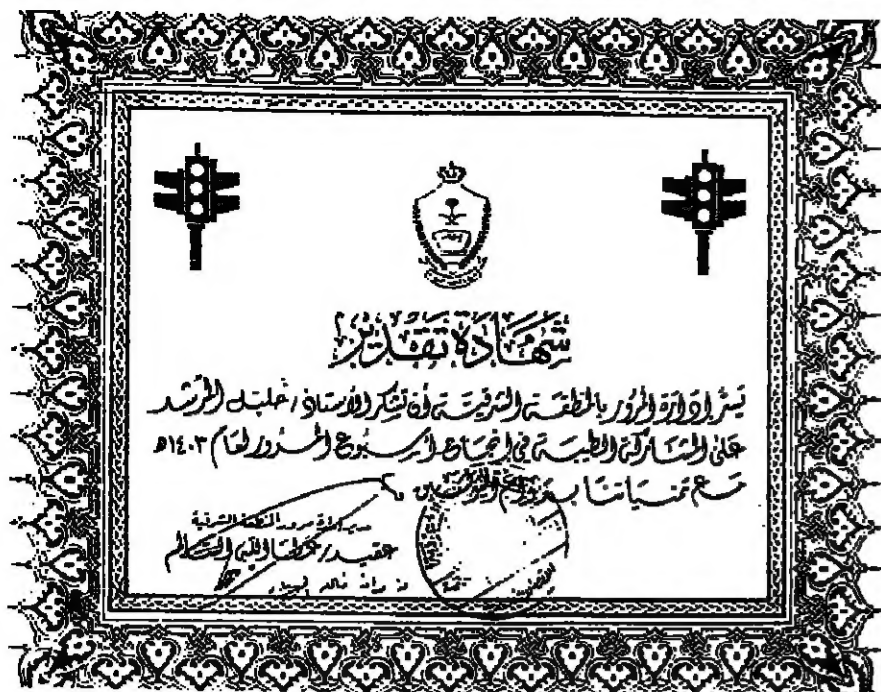 شهادة تقدير
تسر إدارة المرور بالمنطقة الشرقية أن تشكر الأستاذ / خليل المرشد
على المشاركة الطيبة في إنجاح أسبوع المرور لعام ١٤٠٣هـ
مع تمنياتنا بدوام التوفيق
مدير إدارة مرور المنطقة الشرقية
عقيد /